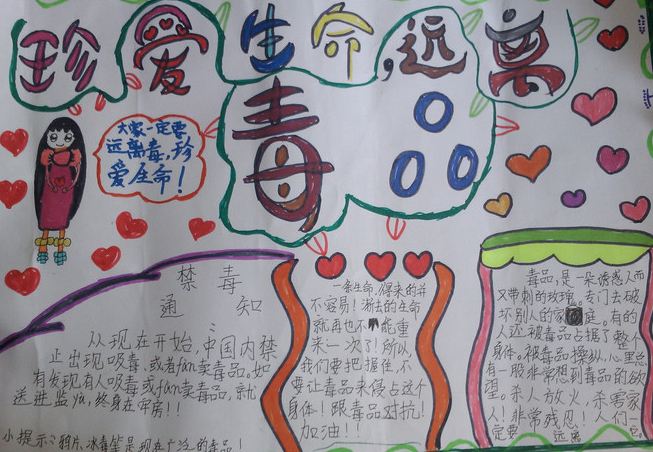 珍爱生命,远离
毒品
大家一定要
远离毒品,珍
爱生命!
禁毒
通知
从现在开始,中国内禁
止出现吸毒,或者fan卖毒品。如
有发现有人吸毒或fan卖毒品,就
送进监烖,终身在牢房!!
小提示:鸦片,冰毒等是现在广泛的毒品!
一条生命,得来的并
不容易!渐去的生命
就再也不能重
来一次了!所以,
我们要把握住,不
要让毒品来侵占这个
身体!跟毒品对抗!
加油!!
毒品,是一朵诱惑人而
又带刺的玫瑰。专门去破
坏别人的家庭。有的
人还被毒品占据了整个
身体。被毒品操纵,心里总
有一股非常想到毒品的欲
望。杀人放火,杀害家
人!非常残忍!人们一
定要远离它。